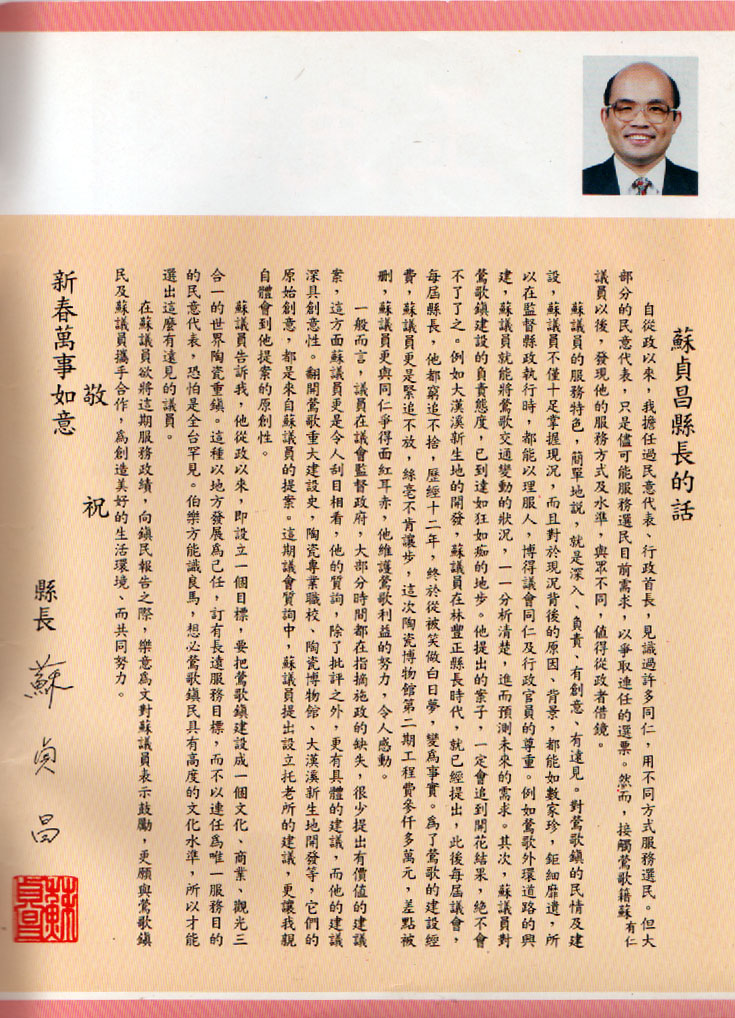 蘇貞昌縣長的話
自從政以來，我擔任過民意代表、行政首長，見識過許多同仁，用不同方式服務選民。但大
部分的民意代表，只是儘可能服務選民目前需求，以爭取連任的選票。然而，接觸鶯歌籍蘇有仁
議員以後，發現他的服務方式及水準，與眾不同，值得從政者借鏡。
蘇議員的服務特色，簡單地說，就是深入、負責、有創意、有遠見。對鶯歌鎮的民情及建
設，蘇議員不僅十足掌握現況，而且對於現況背後的原因、背景，都能如數家珍，鉅細靡遺，所
以在監督縣政執行時，都能以理服人，博得議會同仁及行政官員的尊重。例如鶯歌外環道路的興
建，蘇議員就能將鶯歌交通變動的狀況，一一分析清楚，進而預測未來的需求。其次，蘇議員對
鶯歌鎮建設的負責態度，已到達如狂如痴的地步。他提出的案子，一定會追到開花結果，絕不會
不了了之。例如大漢溪新生地的開發，蘇議員在林豐正縣長時代，就已經提出，此後每屆議會，
每屆縣長，他都窮追不捨，歷經十二年，終於從被笑做白日夢，變為事實。為了鶯歌的建設經
費，蘇議員更是緊追不放，絲毫不肯讓步，這次陶瓷博物館第二期工程費參仟多萬元，差點被
刪，蘇議員更與同仁爭得面紅耳赤，他維護鶯歌利益的努力，令人感動。
一般而言，議員在議會監督政府，大部分時間都在指摘施政的缺失，很少提出有價值的建議
案，這方面蘇議員更是令人刮目相看，他的質詢，除了批評之外，更有具體的建議，而他的建議
深具創意性。翻開鶯歌重大建設史，陶瓷專業職校、陶瓷博物館、大漢溪新生地開發等，它們的
原始創意，都是來自蘇議員的提案。這期議會質詢中，蘇議員提出設立托老所的建議，更讓我親
自體會到他提案的原創性。
蘇議員告訴我，他從政以來，即設立一個目標，要把鶯歌鎮建設成一個文化、商業、觀光三
合一的世界陶瓷重鎮。這種以地方發展為己任，訂有長遠服務目標，而不以連任為唯一服務目的
的民意代表，恐怕是全台罕見。伯樂方能識良馬，想必鶯歌鎮民具有高度的文化水準，所以才能
選出這麼有遠見的議員。
在蘇議員欲將這期服務政績，向鎮民報告之際，樂意為文對蘇議員表示鼓勵，更願與鶯歌鎮
民及蘇議員攜手合作，為創造美好的生活環境、而共同努力。
敬祝
新春萬事如意
縣長 蘇貞昌
蘇貞昌